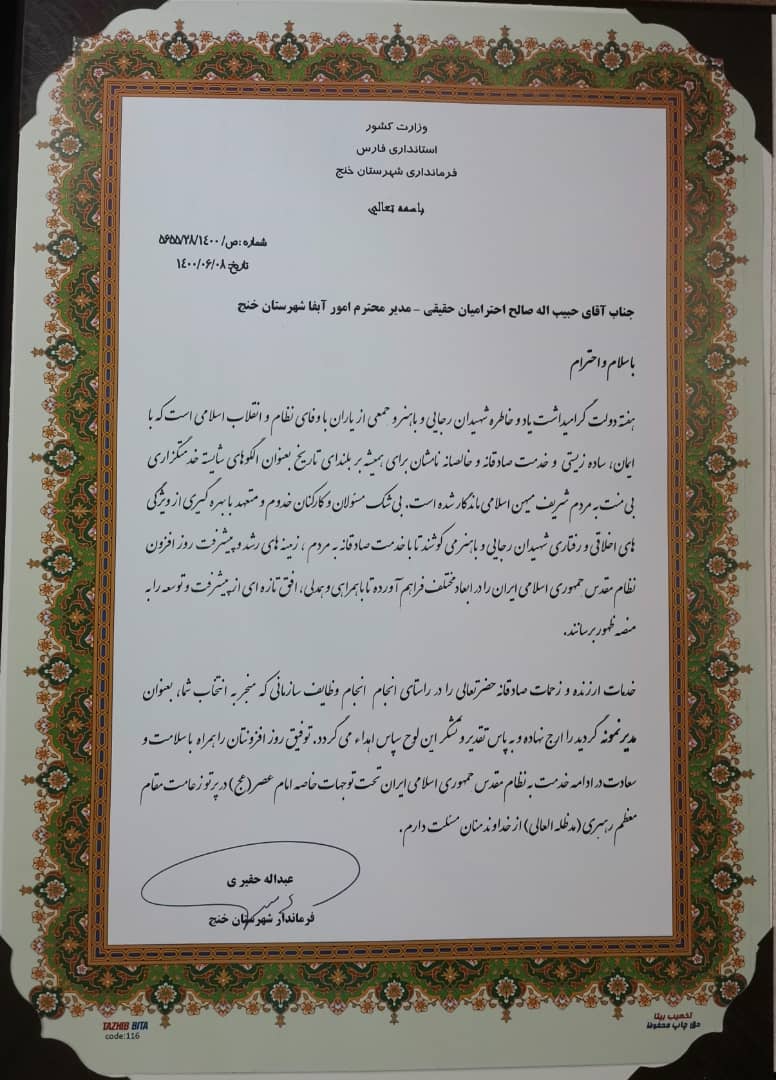 وزارت کشور
استانداری فارس
فرمانداری شهرستان خنج
باسمه تعالی
شماره :ص/ ۵۶۵۵/۲۸/۱۴۰۰
تاریخ ۱۴۰۰/۰۶/۰۸
جناب آقای حبیب اله صالح احترامیان حقیقی - مدیر محترم امور آبفا شهرستان خنج
با سلام و احترام
هفته دولت گرامیداشت یاد و خاطره شهیدان رجایی و باهنر و جمعی از یاران با وفای نظام و انقلاب اسلامی است که با
ایمان، ساده زیستی و خدمت صادقانه و خالصانه نامشان برای همیشه بر بلندای تاریخ بعنوان الگوهای شایسته خدمتگزاری
بی منت به مردم شریف میهن اسلامی ماندگار شده است. بی شک مسئولان و کارکنان خدوم و متعهد با بهره گیری از ویژگی
های اخلاقی و رفتاری شهیدان رجایی و باهنر می کوشند تا با خدمت صادقانه به مردم ، زمینه های رشد و پیشرفت روز افزون
نظام مقدس جمهوری اسلامی ایران را در ابعاد مختلف فراهم آورده تا با همراهی و همدلی، افق تازه ای از پیشرفت و توسعه را به
منصه ظهور برسانند.
خدمات ارزنده و زحمات صادقانه حضرتعالی را در راستای انجام انجام وظایف سازمانی که منجر به انتخاب شما، بعنوان
مدیر نمونه گردید را ارج نهاده و به پاس تقدیر و تشکر این لوح سپاس اهداء می گردد. توفیق روز افزونتان را همراه با سلامت و
سعادت در ادامه خدمت به نظام مقدس جمهوری اسلامی ایران تحت توجهات خاصه امام عصر (عج) در پرتو زعامت مقام
معظم رهبری (مدظله العالی) از خداوند منان مسئلت دارم.
عبداله حقیری
فرماندار شهرستان خنج
TAZHIB BITA
code:116
تذهیب بیتا
حق چاپ محفوظ